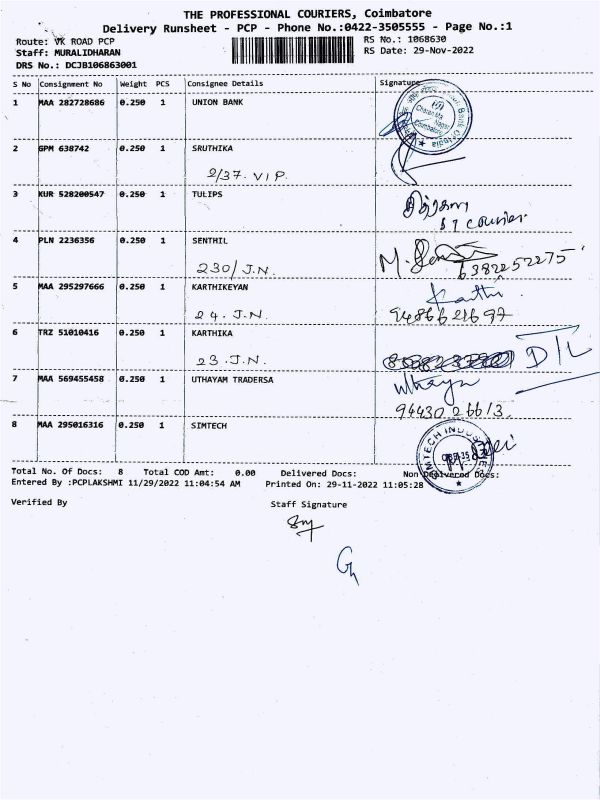 THE PROFESSIONAL COURIERS, Coimbatore
Delivery Runsheet - PCP - Phone No.:0422-3505555 - Page No.:1
Route: VK ROAD PCP
RS No.: 1068630
Staff: MURALIDHARAN
RS Date: 29-Nov-2022
DRS No.: DCJB106863001
S No Consignment No Weight PCS Consignee Details Signature
1 MAA 282728686 0.250 1 UNION BANK
2 GPM 638742 0.250 1 SRUTHIKA
2/37. V.I.P.
3 KUR 528200547 0.250 1 TULIPS
ST courier
4 PLN 2236356 0.250 1 SENTHIL
230/ J.N. 6382252275
5 MAA 295297666 0.250 1 KARTHIKEYAN Karthi
24. J.N. 9486621697
6 TRZ 51010416 0.250 1 KARTHIKA
23. J.N. D/L
7 MAA 569455458 0.250 1 UTHAYAM TRADERSA uthaya
94430 26613.
8 MAA 295016316 0.250 1 SIMTECH
SIMTECH INDUSTRIES
CBE-35
Total No. Of Docs: 8 Total COD Amt: 0.00 Delivered Docs: Non Delivered Docs:
Entered By :PCPLAKSHMI 11/29/2022 11:04:54 AM Printed On: 29-11-2022 11:05:28
Verified By Staff Signature